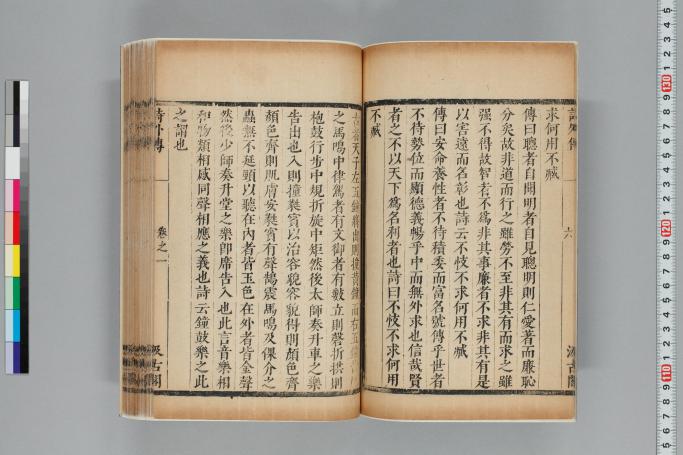 求何用不臧
傳曰聰者自聞明者自見聰明則仁愛著而廉恥
分矣故非道而行之雖勞不至非其有而求之雖
强不得故智者不爲非其事廉者不求非其有是
以害遠而名彰也詩云不忮不求何用不臧
傳曰安命養性者不待積委而富名號傳乎世者
不待勢位而顯德義暢乎中而無外求也信哉賢
者之不以天下爲名利者也詩曰不忮不求何用
不臧
古者天子左五鐘將出則撞黃鐘而右五鐘
之馬鳴中律駕者有文御者有數立則磬折拱則
抱鼓行步中規折旋中矩然後太師奏升車之樂
告出也入則撞蕤賓以治容貌容貌得則顏色齊
顏色齊則肌膚安蕤賓有聲鵠震馬鳴及倮介之
蟲無不延頸以聽在內者皆玉色在外者皆金聲
然後少師奏升堂之樂卽席告入也此言音樂相
和物類相感同聲相應之義也詩云鐘鼓樂之此
之謂也
詩外傳
卷之一
汲古閣
詩外傳
六
汲古閣
5 4 3 2 1 130 9 8 7 6 5 4 3 2 1 120 9 8 7 6 5 4 3 2 1 110 9 8 7 6 5